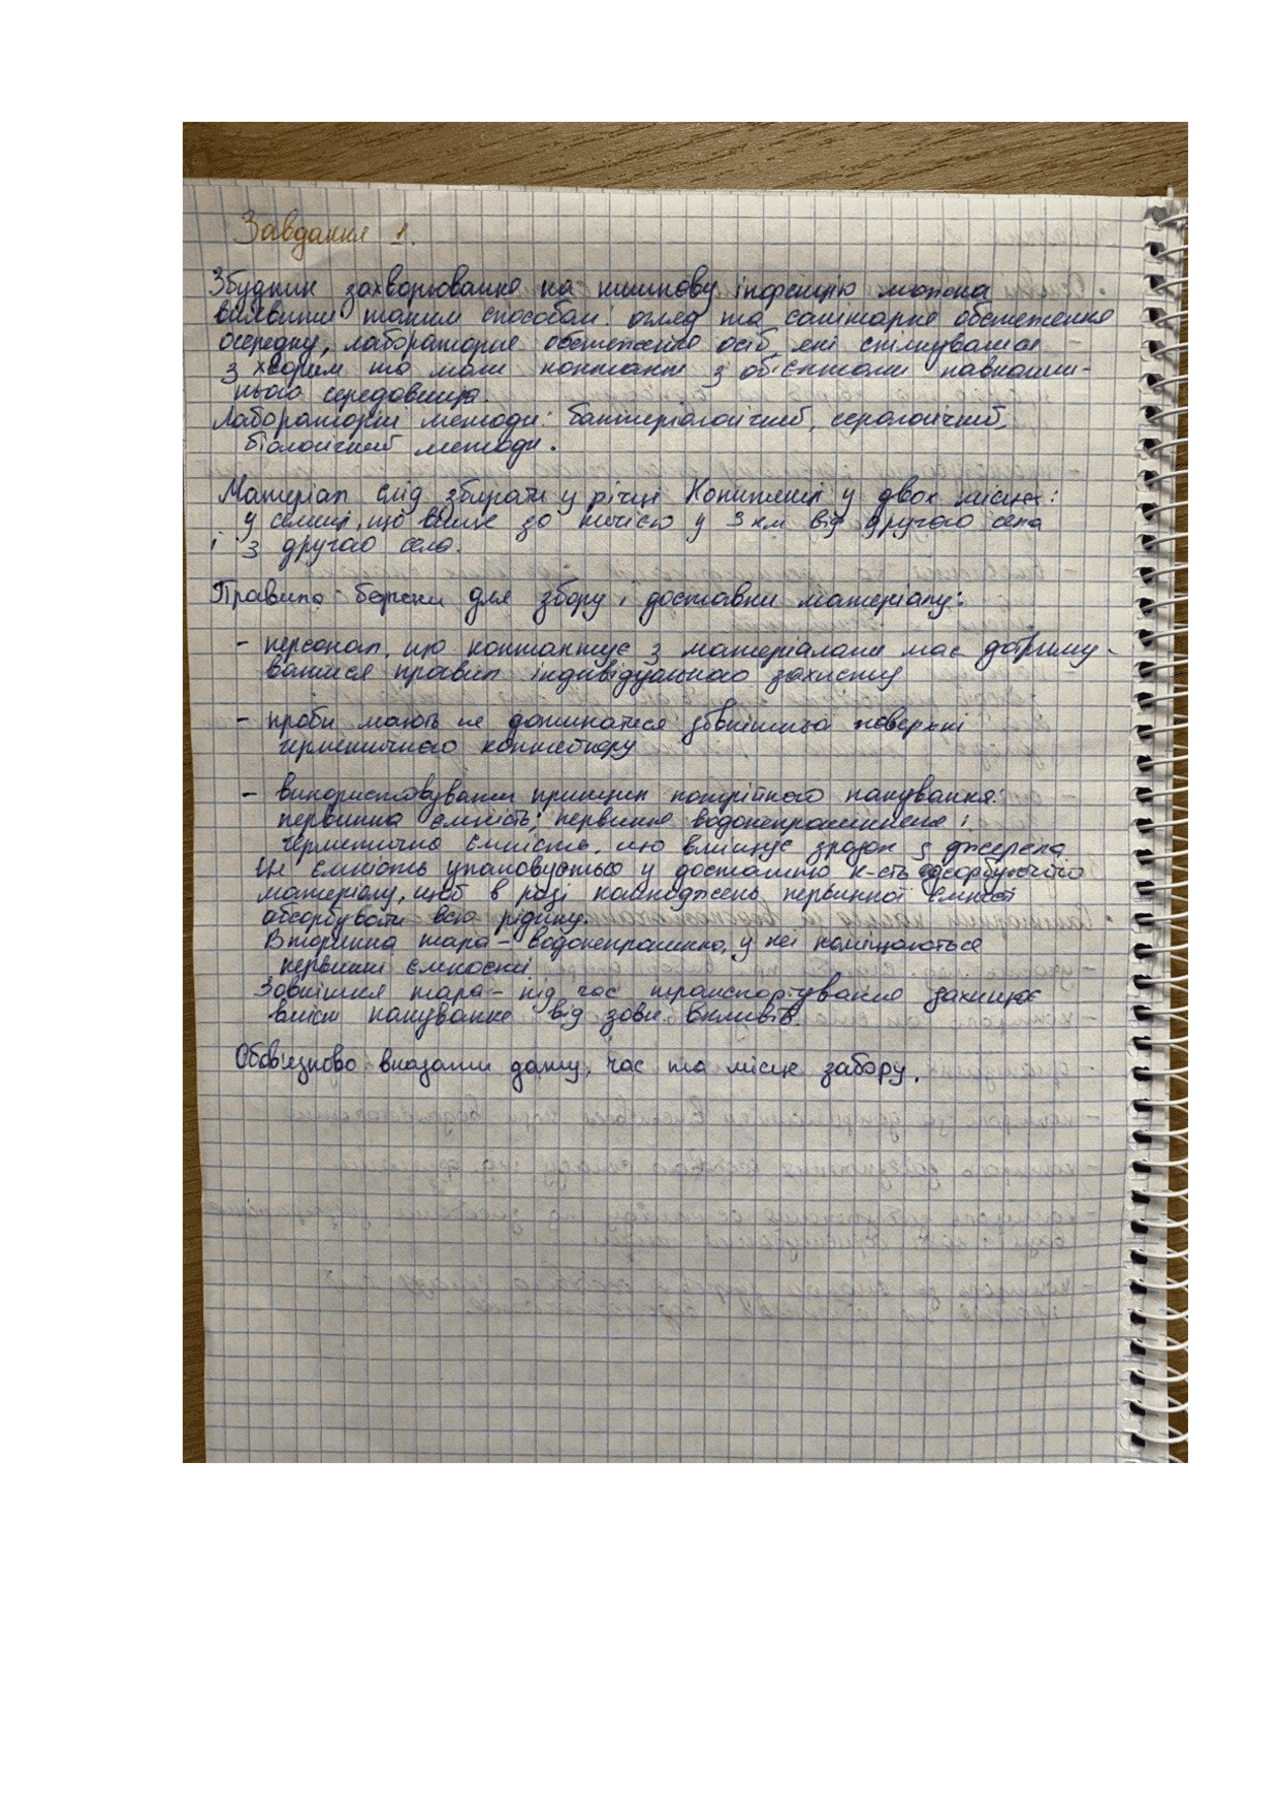 Завдання 1.
Збудник захворювання на кишкову інфекцію можна
виявити таким способом: огляд та санітарне обстеження
осередку, лабораторне обстеження осіб, які спілкувались
з хворим та мали контакт з об'єктами навколиш-
нього середовища.
Лабораторні методи: бактеріологічний, серологічний,
біологічний методи.
Матеріал слід збирати у річці у двох місцях:
у селищі, що вище за течією у 3 км від другого села
і з другого села.
Правила безпеки для збору і доставки матеріалу:
- персонал, що контактує з матеріалами має дотриму-
ватися правил індивідуального захисту
- проби мають не дотикатися зовнішньої поверхні
герметичного контейнеру
- використовувати принцип потрійного пакування:
первинна ємність; первинна водонепроникнена і
герметична ємність, що вміщує зразок з джерела
Ця ємність упаковується у достатню к-сть адсорбуючого
матеріалу, щоб в разі пошкоджень первинної ємності
абсорбувати всю рідину.
Вторинна тара - водонепроникна, у неї поміщаються
первинні ємності
Зовнішня тара - під час транспортування захищає
вміст пакування від зовн. впливів.
Обов'язково вказати дату, час та місце забору.